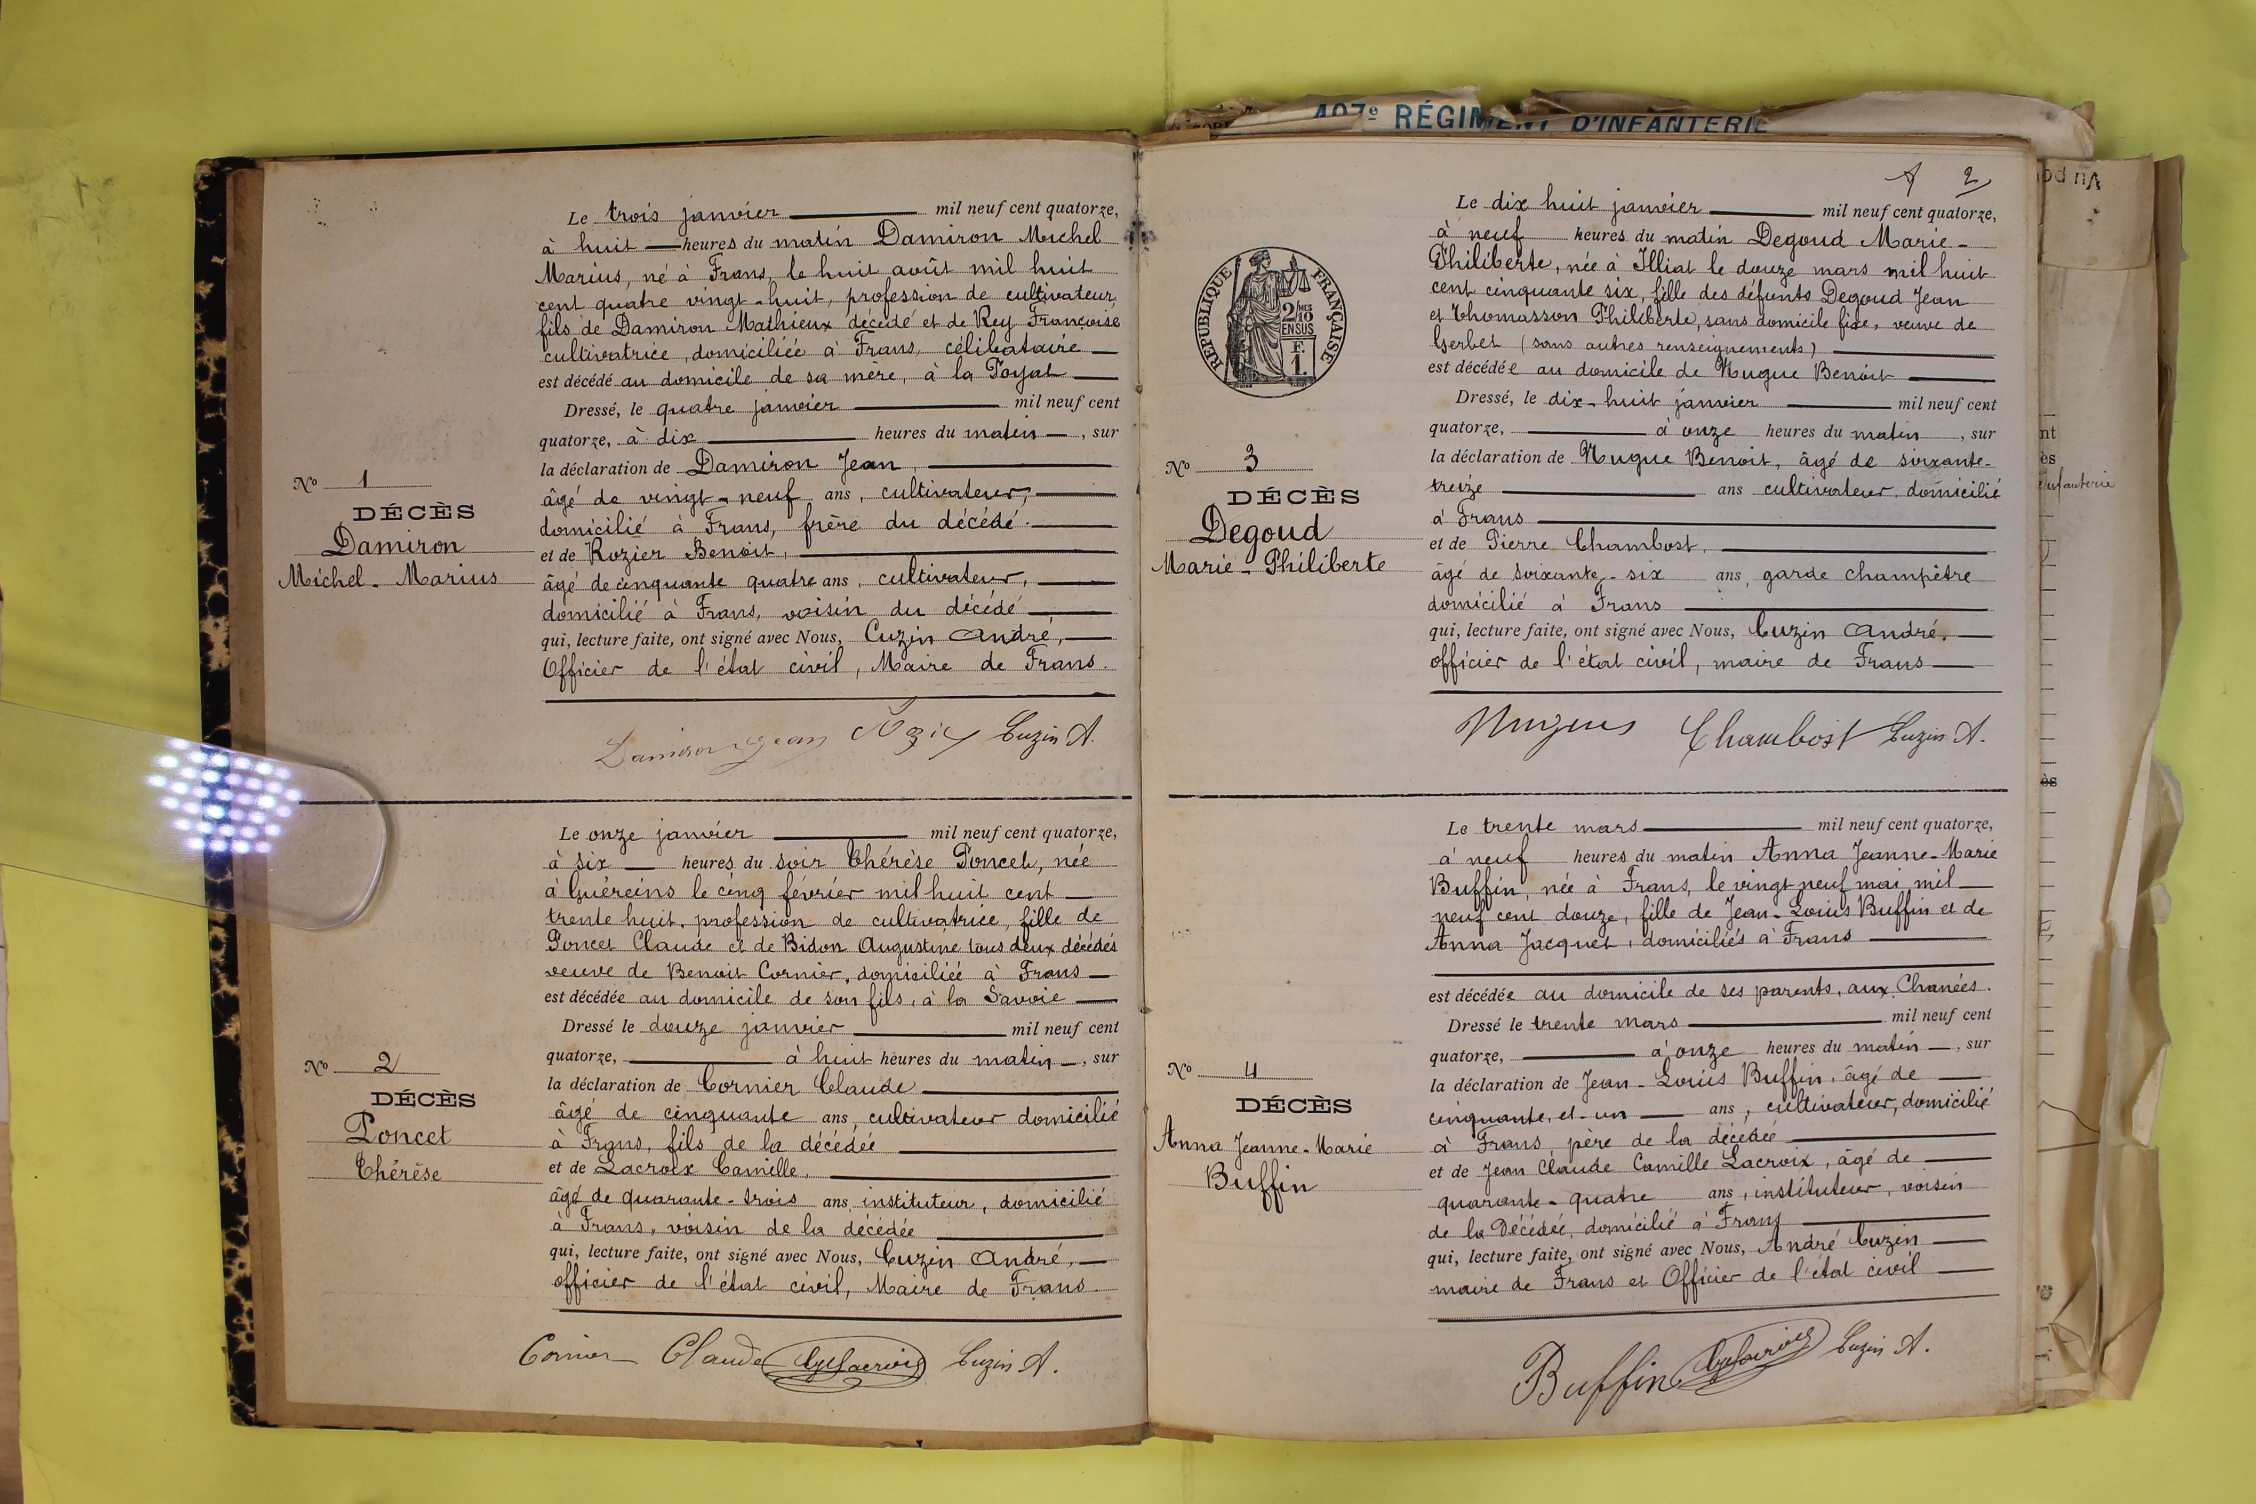 Le trois janvier mil neuf cent quatorze,
à huit heures du matin Damiron Michel
Marius, né à Frans, le huit août mil huit
cent quatre vingt-huit, profession de cultivateur,
fils de Damiron Mathieux décédé et de Rey Françoise
cultivatrice, domiciliée à Frans, célibataire
est décédé au domicile de sa mère, à la Poyat
Dressé, le quatre janvier mil neuf cent
quatorze, à dix heures du matin, sur
la déclaration de Damiron Jean,
âgé de vingt-neuf ans, cultivateur,
domicilié à Frans, frère du décédé.
et de Rozier Benoit,
âgé de cinquante quatre ans, cultivateur,
domicilié à Frans, voisin du décédé
qui, lecture faite, ont signé avec Nous, Cuzin André,
Officier de l'état civil, Maire de Frans.
No 1
DÉCÈS
Damiron
Michel-Marius
Damiron Jean Cuzin A.
Le onze janvier mil neuf cent quatorze,
à six heures du soir Thérèse Poncet, née
à Guéreins le cinq février mil huit cent
trente huit, profession de cultivatrice, fille de
Poncet Claude et de Bidon Augustine tous deux décédés
veuve de Benoit Cornier, domiciliée à Frans
est décédée au domicile de son fils, à la Savoie
Dressé le douze janvier mil neuf cent
quatorze, à huit heures du matin, sur
la déclaration de Cornier Claude
âgé de cinquante ans, cultivateur domicilié
à Frans, fils de la décédée
et de Lacroix Camille,
âgé de quarante-trois ans, instituteur, domicilié
à Frans, voisin de la décédée
qui, lecture faite, ont signé avec Nous, Cuzin André,
officier de l'état civil, Maire de Frans.
No 2
DÉCÈS
Poncet
Thérèse
Cornier Claude Lacroix Cuzin A.
407e RÉGIMENT D'INFANTERIE
2
Le dix huit janvier mil neuf cent quatorze,
à neuf heures du matin Degoud Marie-
Philiberte, née à Illiat le douze mars mil huit
cent cinquante six, fille des défunts Degoud Jean
et Thomasson Philiberte, sans domicile fixe, veuve de
Gerbet (sans autres renseignements)
est décédée au domicile de Nugue Benoit
Dressé, le dix-huit janvier mil neuf cent
quatorze, à onze heures du matin, sur
la déclaration de Nugue Benoit, âgé de soixante-
treize ans cultivateur, domicilié
à Frans
et de Pierre Chambost,
âgé de soixante-six ans, garde champêtre
domicilié à Frans
qui, lecture faite, ont signé avec Nous, Cuzin André,
officier de l'état civil, maire de Frans
RÉPUBLIQUE FRANÇAISE
2/10 MES
EN SUS
F.
1.
No 3
DÉCÈS
Degoud
Marie-Philiberte
Chambost Cuzin A.
Le trente mars mil neuf cent quatorze,
à neuf heures du matin Anna Jeanne-Marie
Buffin, née à Frans, le vingt neuf mai mil
neuf cent douze, fille de Jean-Louis Buffin et de
Anna Jacquet, domiciliés à Frans
est décédée au domicile de ses parents, aux Chanées.
Dressé le trente mars mil neuf cent
quatorze, à onze heures du matin, sur
la déclaration de Jean-Louis Buffin, âgé de
cinquante-et-un ans, cultivateur, domicilié
à Frans père de la décédée
et de Jean Claude Camille Lacroix, âgé de
quarante-quatre ans, instituteur, voisin
de la Décédée, domicilié à Frans
qui, lecture faite, ont signé avec Nous, André Cuzin
maire de Frans et Officier de l'état civil
No 4
DÉCÈS
Anna Jeanne-Marie
Buffin
Buffin Lacroix Cuzin A.